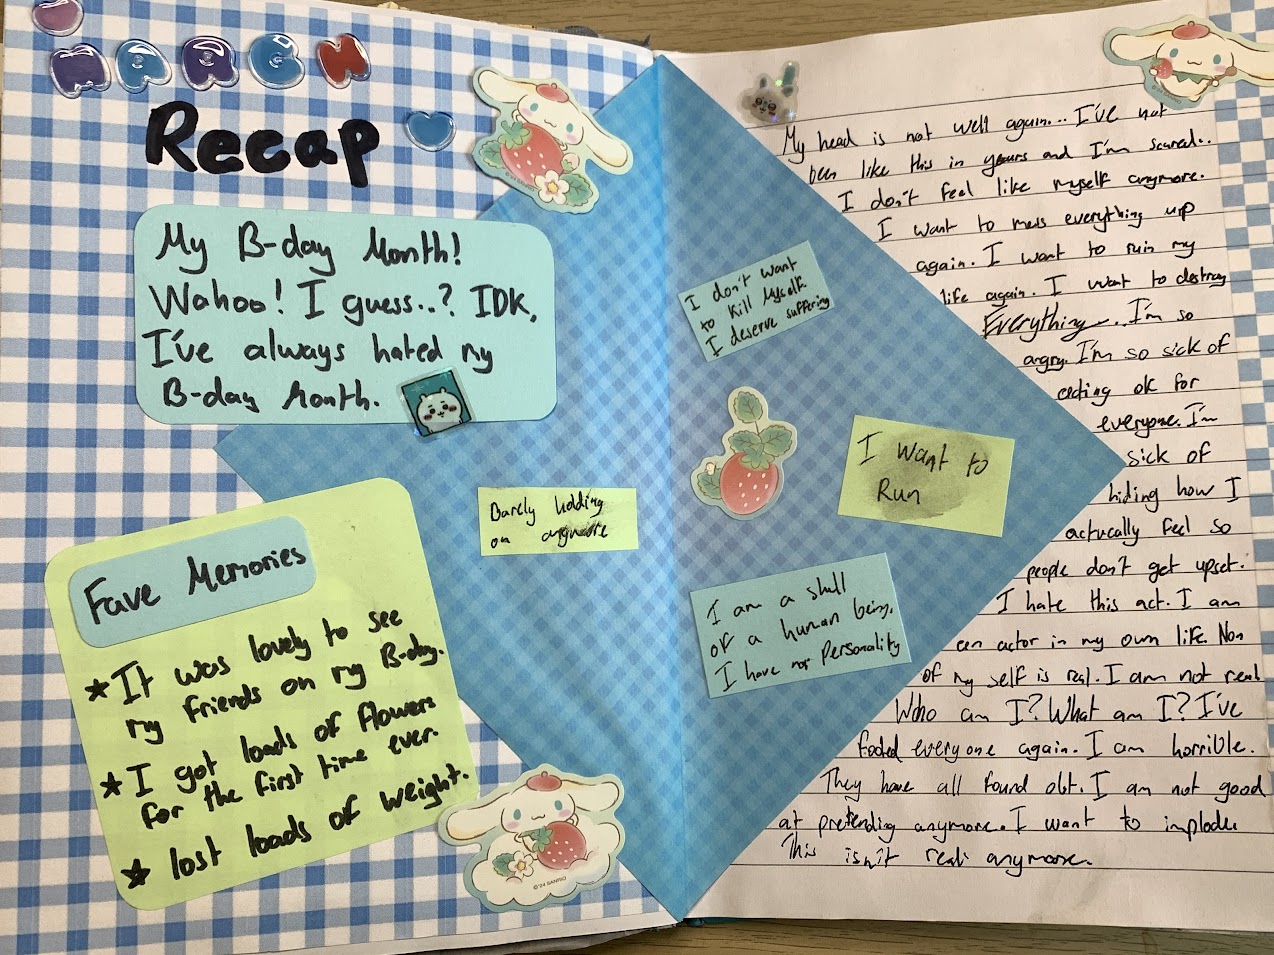 MARCH
Recap
My B-day Month!
Wahoo! I guess..? IDK,
I've always hated my
B-day Month.
Fave Memories
★ It was lovely to see
my friends on my B-day.
★ I got loads of flowers
for the first time ever.
★ lost loads of weight.
©'24 SANRIO
Barely holding
on anymore
I don't want
to kill Myself.
I deserve suffering
I Want to
Run
I am a shell
of a human being.
I have no personality
My head is not well again... I've not
been like this in years and I'm scared..
I don't feel like myself anymore.
I want to mess everything up
again. I want to ruin my
life again. I want to destroy
Everything... I'm so
angry. I'm so sick of
acting ok for
everyone. I'm
sick of
hiding how I
actucally feel so
people don't get upset.
I hate this act. I am
an actor in my own life. Non
of my self is real. I am not real
Who am I? What am I? I've
fooled everyone again. I am horrible.
They have all found out. I am not good
at pretending anymore. I want to implode
This isn't real anymore.